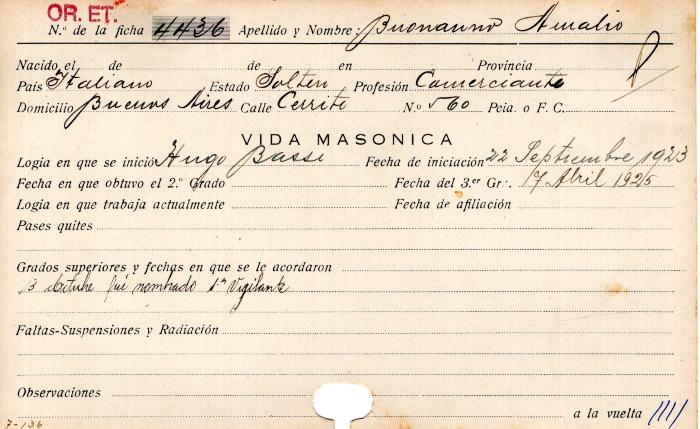 OR. ET.
N.º de la ficha 4436 Apellido y Nombre: Buonanno Amalio
Nacido el de de en Provincia
País Italiano Estado Soltero Profesión Comerciante
Domicilio Buenos Aires Calle Cerrito N.º 560 Pcia. o F. C.
VIDA MASONICA
Logia en que se inició Hugo Bassi Fecha de iniciación 22 Septiembre 1923
Fecha en que obtuvo el 2.º Grado Fecha del 3.er Gr∴ 17 Abril 1925
Logia en que trabaja actualmente Fecha de afiliación
Pases quites
Grados superiores y fechas en que se le acordaron
13 octubre fué nombrado 1er Vigilante
Faltas-Suspensiones y Radiación
Observaciones
a la vuelta ////
7-136